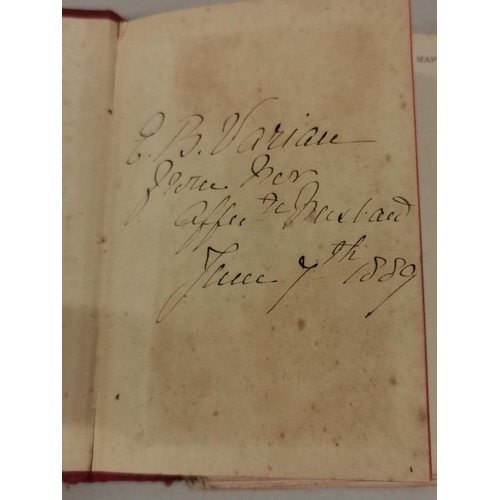 E. B. Varian
from her
affec te husband
June 7th 1889
MAP